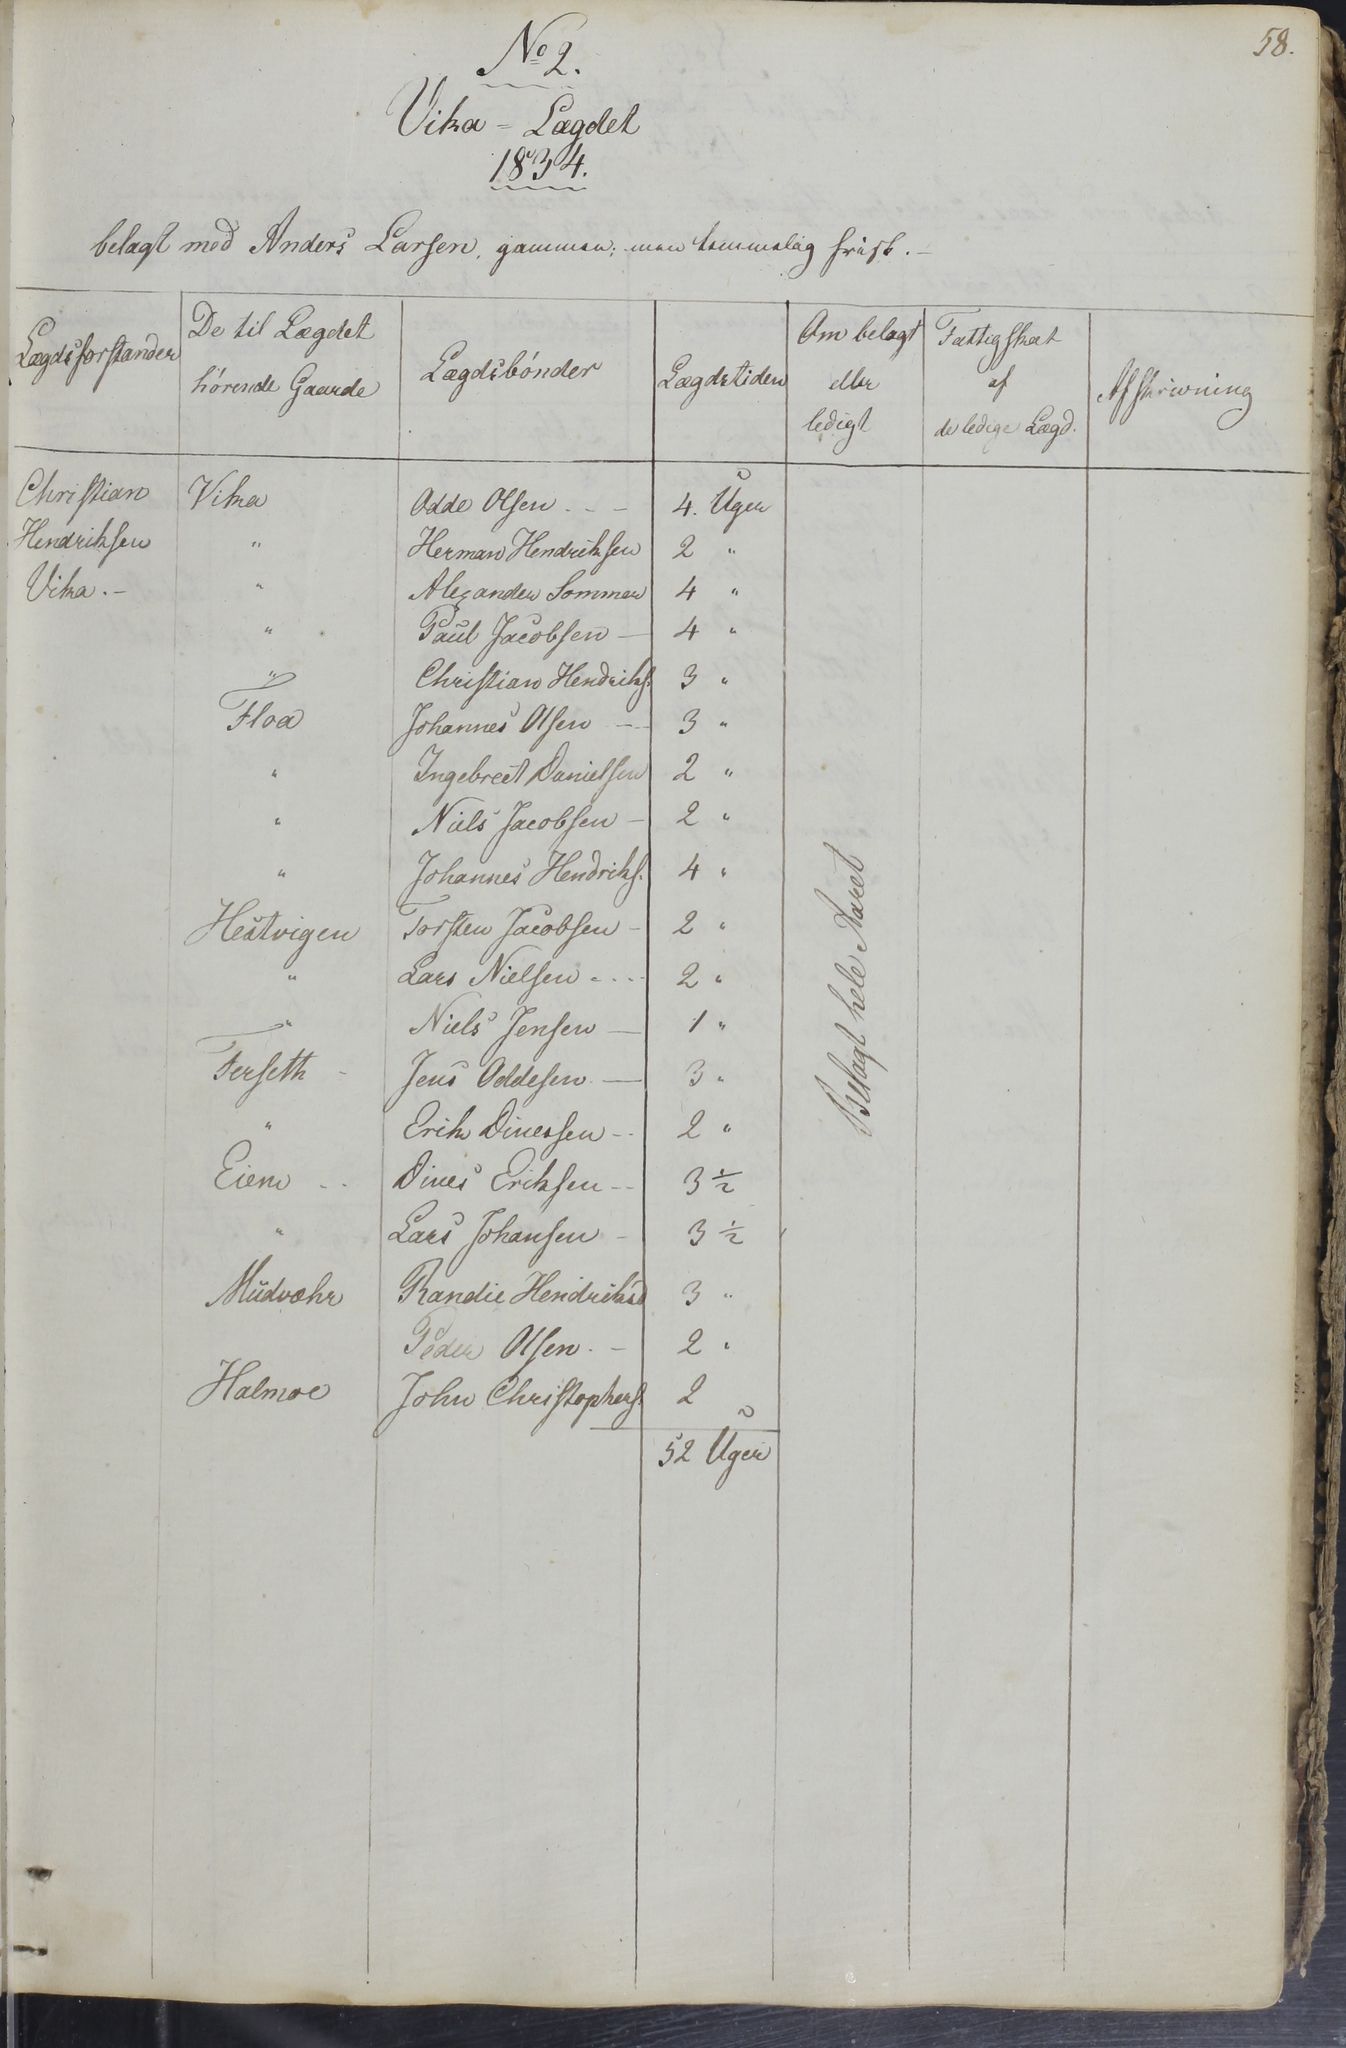 58.
No 2.
Vika - Lægdet
1834.
belagt med Anders Larsen, gammen; men temmelig frisk. -
Lægdsforstander
De til Lægdet hørende Gaarde
Lægdsbønder
Lægdstiden
Om belagt eller ledigt
Fattigskat af de ledige Lægd.
Afskrivning
Christian Vika Odde Olsen - - - 4. Uger
Hendriksen " Herman Hendriksen 2 "
Vika. - " Alexander Sommer 4 "
" Paul Jacobsen - 4 "
" Christian Hendriks. 3 "
Floa Johannes Olsen - - 3 "
" Ingebret Danielsen 2 "
" Niels Jacobsen - 2 "
" Johannes Hendriks. 4 "
Hestvigen Torsten Jacobsen - 2 "
" Lars Nielsen - - - - 2 "
" Niels Jensen - 1 "
Ferseth - Jens Oddesen - 3 "
" Erik Dinessen - - 2 "
Eiem - - Dines Eriksen - - 3 1/2
" Lars Johansen - 3 1/2
Mudvæhr Randie Hendriksd 3 "
Peder Olsen. - 2 "
Halmoe John Christophers. 2
52 Uger
Belagt hele Aaret